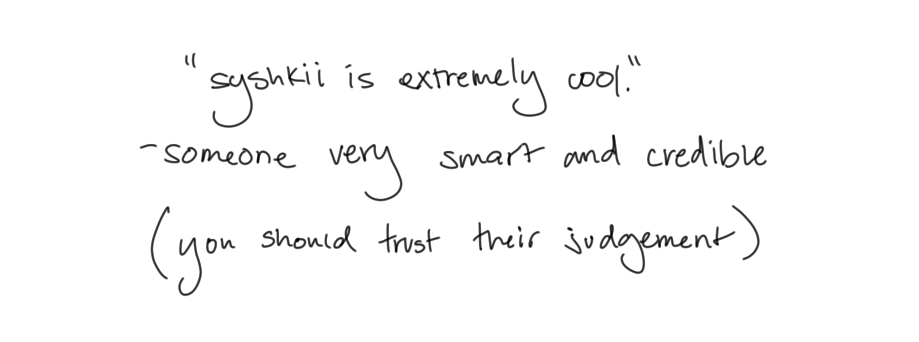 "syshkii is extremely cool."
-someone very smart and credible
(you should trust their judgement)